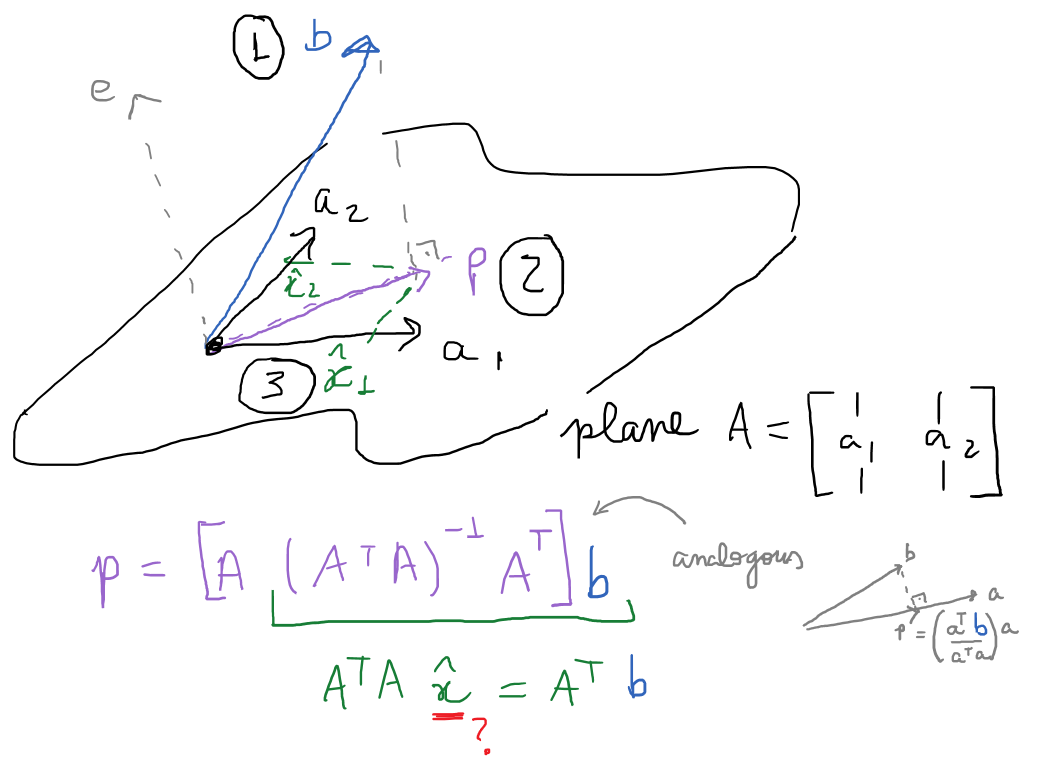 1 b
e
a₂
p 2
x̂₂
a₁
3 x̂₁
plane A = [ a₁ a₂ ]
p = [A (AᵀA)⁻¹ Aᵀ] b
analogous
b
a
p = (aᵀb / aᵀa) a
AᵀA x̂ = Aᵀ b
?